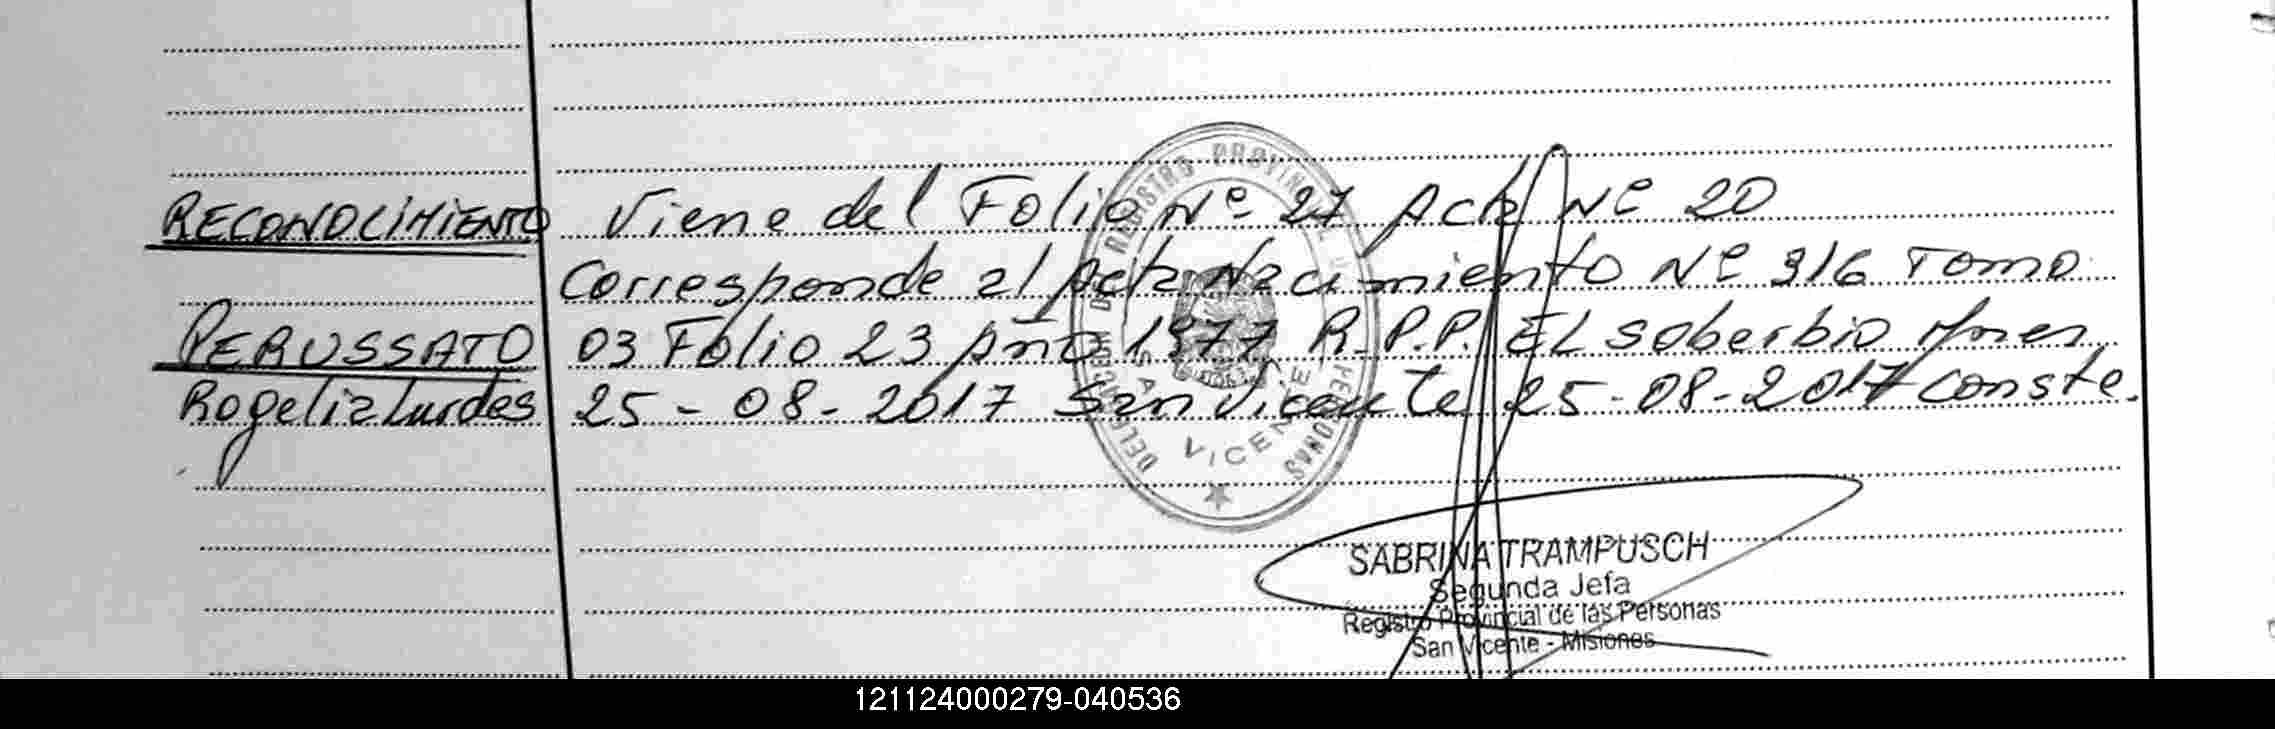 RECONOCIMIENTO Viene del Folio Nº 27 Acta Nº 20
Corresponde al Acta Nacimiento Nº 316 Tomo
PERUSSATO 03 Folio 23 Año 1977 R.P.P. EL Soberbio Mnes
Rogelia Lurdes 25-08-2017 San Vicente 25-08-2017 conste.
DELEGACION DE REGISTRO PROVINCIAL DE PERSONAS
SAN VICENTE
SABRINA TRAMPUSCH
Segunda Jefa
Registro Provincial de las Personas
San Vicente - Misiones
121124000279-040536